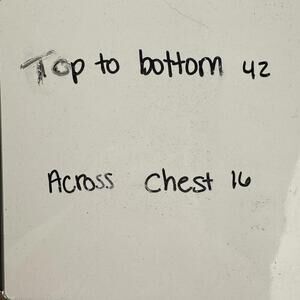 Top to bottom 42
Across Chest 16